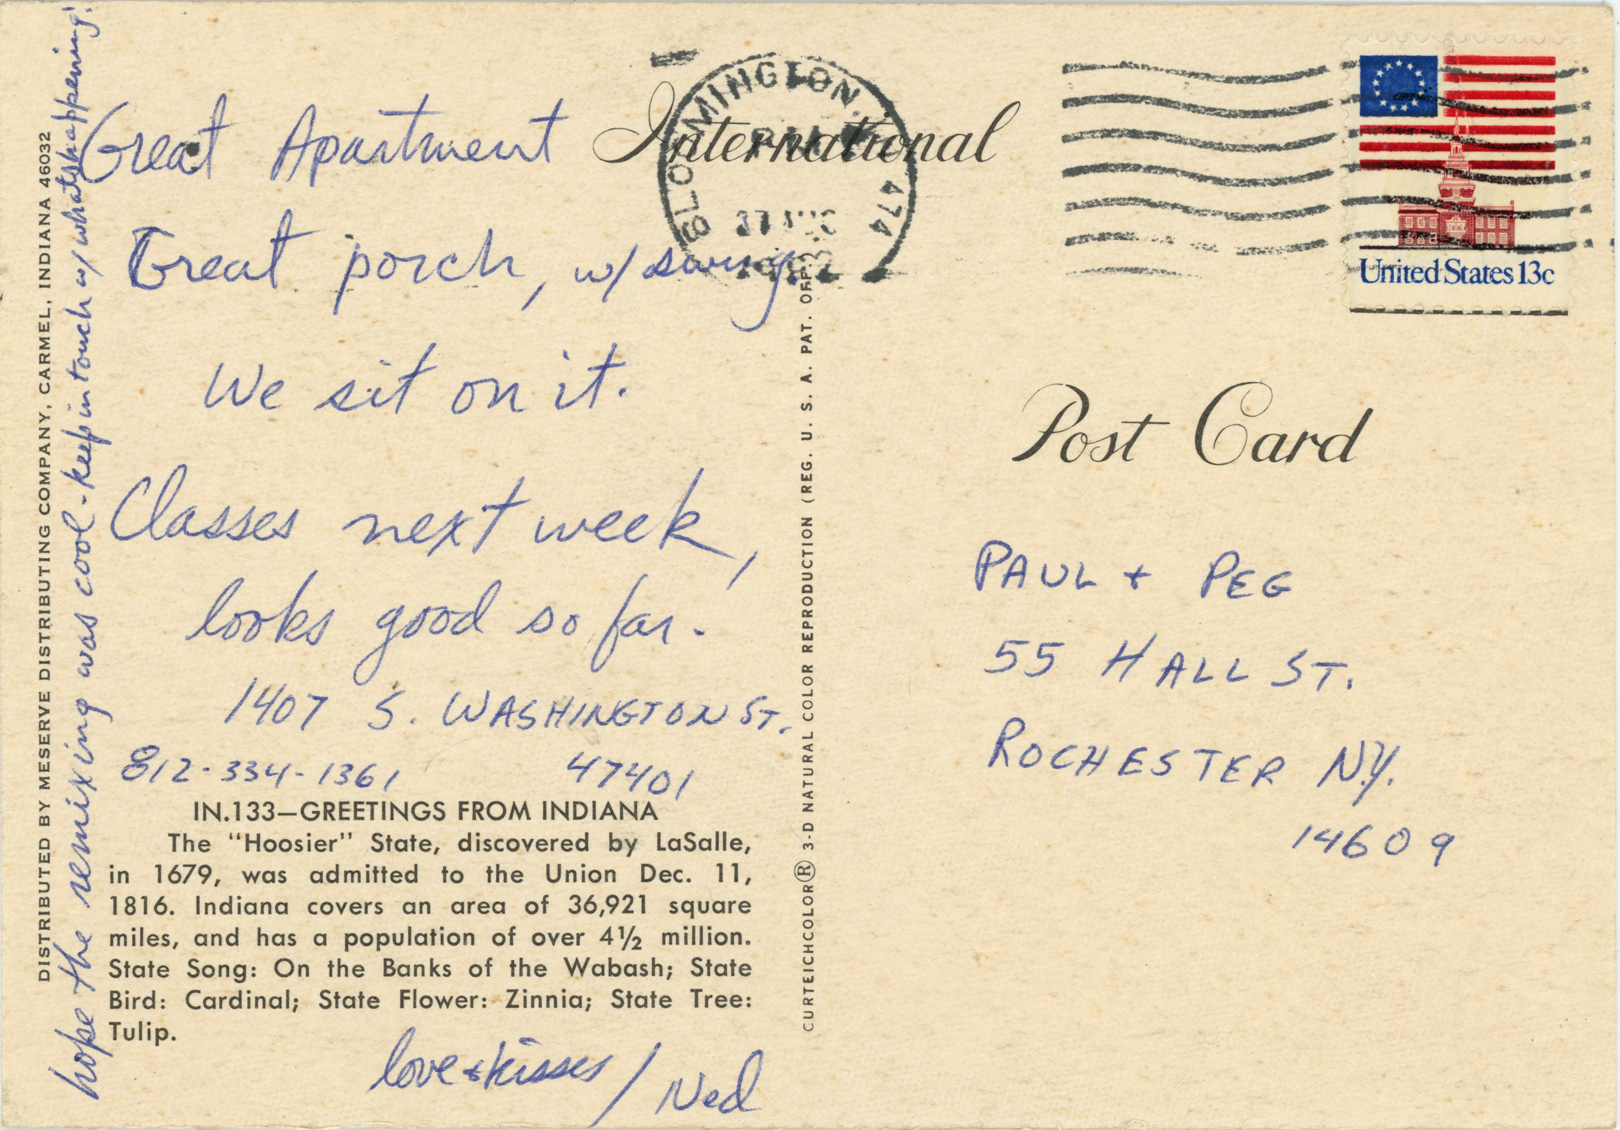 Great Apartment
Great porch, w/ swing
We sit on it.
Classes next week,
looks good so far.
1407 S. WASHINGTON ST.
812-334-1361 47401
IN.133—GREETINGS FROM INDIANA
The "Hoosier" State, discovered by LaSalle,
in 1679, was admitted to the Union Dec. 11,
1816. Indiana covers an area of 36,921 square
miles, and has a population of over 4½ million.
State Song: On the Banks of the Wabash; State
Bird: Cardinal; State Flower: Zinnia; State Tree:
Tulip.
love + kisses / Ned
hope the remixing was cool - keep in touch w/ whats happening!
DISTRIBUTED BY MESERVE DISTRIBUTING COMPANY, CARMEL, INDIANA 46032
CURTEICHCOLOR® 3-D NATURAL COLOR REPRODUCTION (REG. U. S. A. PAT. OFF.)
International
BLOOMINGTON, 474
PM
AUG
United States 13c
Post Card
PAUL + PEG
55 HALL ST.
ROCHESTER N.Y.
14609